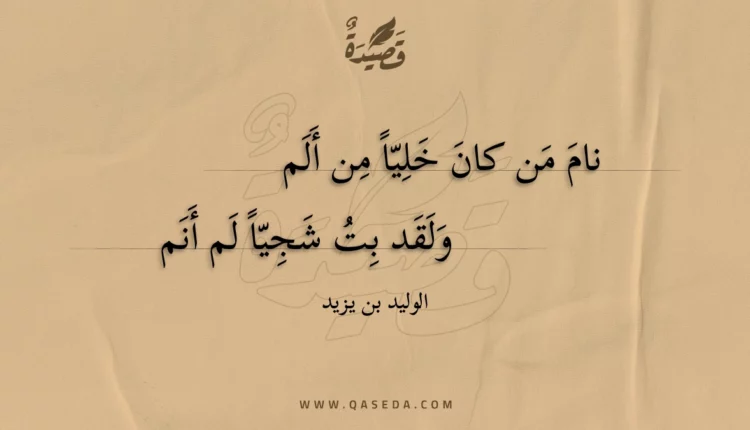 قَصِيْدَةٌ
نامَ مَن كانَ خَلِيّاً مِن أَلَم
وَلَقَد بِتُ شَجِيّاً لَم أَنَم
الوليد بن يزيد
WWW.QASEDA.COM